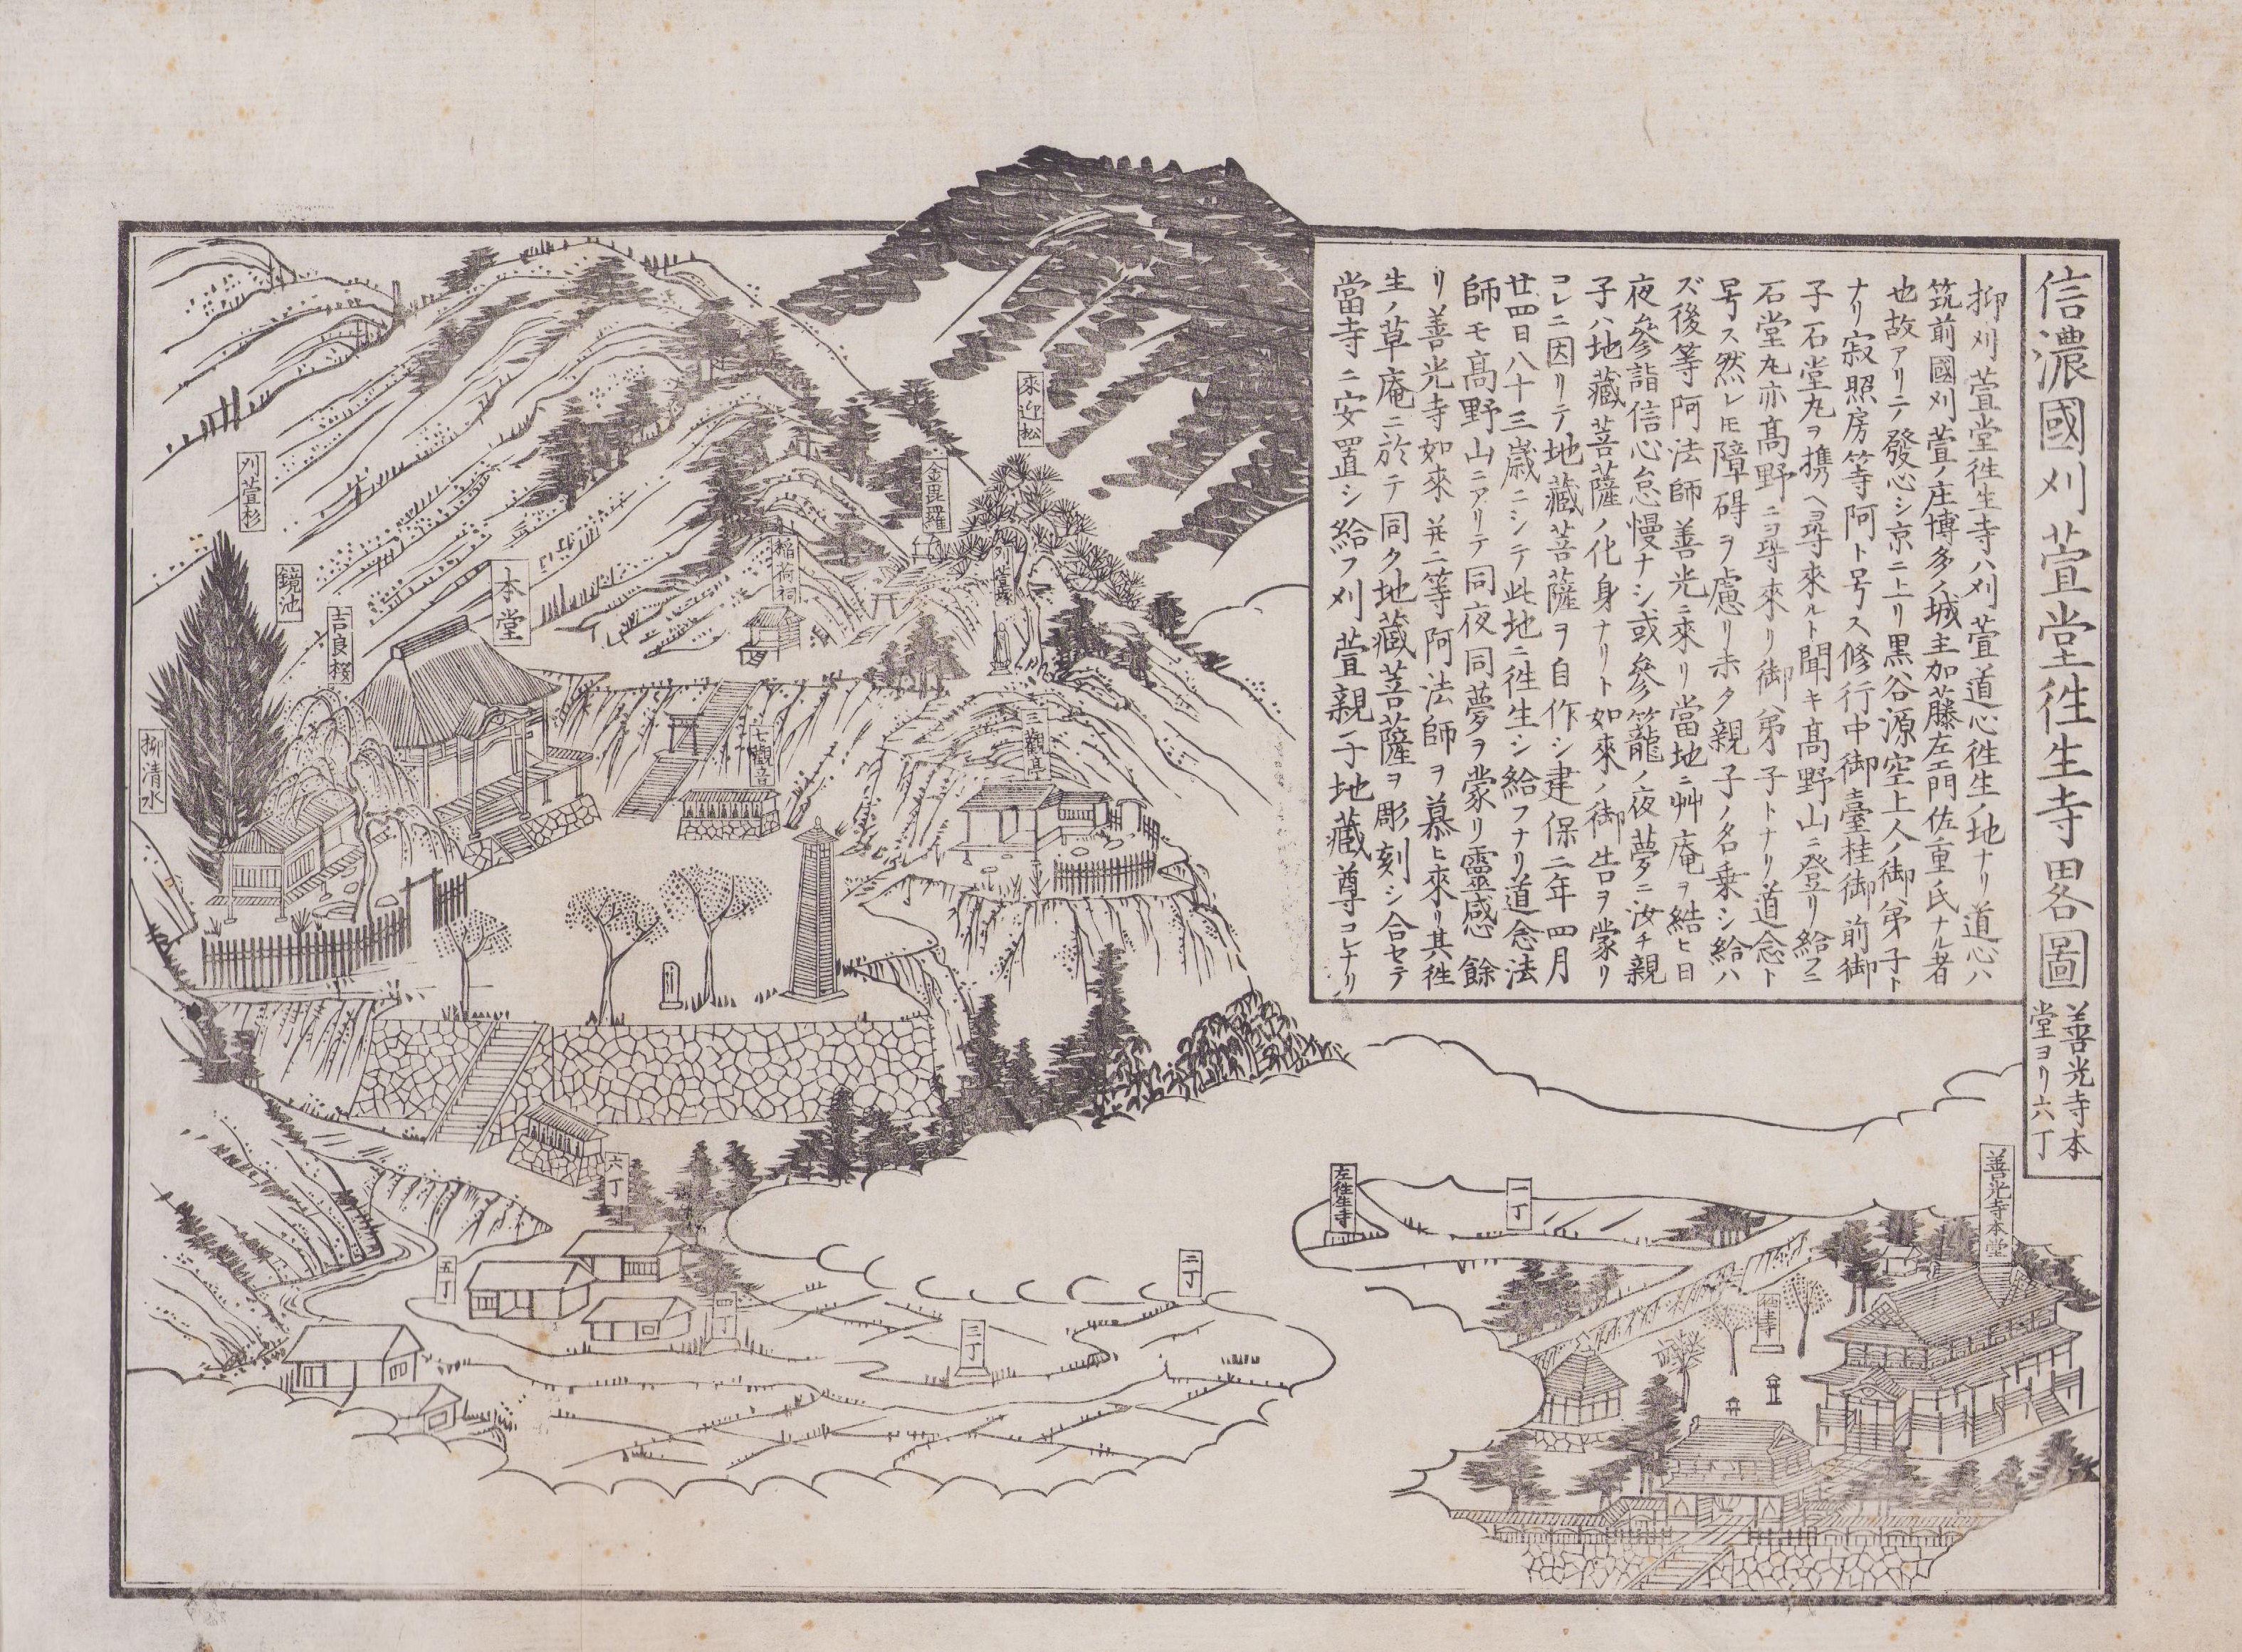 信濃國刈萱堂徃生寺畧圖
善光寺本
堂ヨリ六丁
抑刈萱堂徃生寺ハ刈萱道心徃生ノ地ナリ道心ハ
筑前國刈萱ノ庄博多ノ城主加藤左エ門佐重氏ナル者
也故アリテ發心シ京ニ上リ黒谷源空上人ノ御弟子ト
ナリ寂照房等阿ト号ス修行中御臺桂御前御
子石堂丸ヲ携ヘ尋來ルト聞キ髙野山ニ登リ給フニ
石堂丸亦髙野ニ尋來リ御弟子トナリ道念ト
号ス然レ𪜈障碍ヲ慮リ未タ親子ノ名乗シ給ハ
ズ後等阿法師善光ニ來リ當地ニ艸庵ヲ結ヒ日
夜參詣信心怠慢ナシ或參籠ノ夜夢ニ汝チ親
子ハ地藏菩薩ノ化身ナリト如來ノ御告ヲ蒙リ
コレニ因リテ地藏菩薩ヲ自作シ建保二年四月
廿四日八十三歳ニシテ此地ニ徃生シ給フナリ道念法
師モ髙野山ニアリテ同夜同夢ヲ蒙リ靈感餘
リ善光寺如來并ニ等阿法師ヲ慕ヒ來リ其徃
生ノ草庵ニ於テ同ク地藏菩薩ヲ彫刻シ合セテ
當寺ニ安置シ給フ刈萱親子地藏尊コレナリ
來迎松
金毘羅
刈萱塚
稲荷祠
三觀亭
七觀音
本堂
刈萱杉
鏡池
吉良桜
柳清水
六丁
五丁
四丁
三丁
二丁
一丁
左徃生寺
善光寺本堂